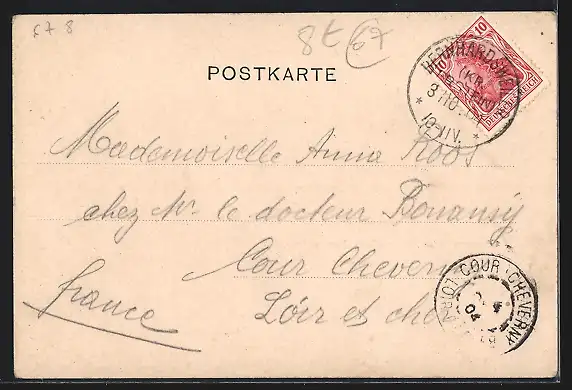 678
8t 67
POSTKARTE
10
DEUTSCHES REICH
10-11V.
Mademoiselle Anna Roos
chez Mr. le docteur Bonansy
Cour Cheverny
france
Loir et cher
COUR-CHEVERNY
04